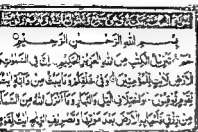 بِسْمِ اللهِ الرَّحْمٰنِ الرَّحِيْمِ
حٰمٓ تَنْزِيْلُ الْكِتٰبِ مِنَ اللهِ الْعَزِيْزِ الْحَكِيْمِ اِنَّ فِي السَّمٰوٰتِ وَ
الْاَرْضِ لَاٰيٰتٍ لِّلْمُؤْمِنِيْنَ وَفِيْ خَلْقِكُمْ وَمَا يَبُثُّ مِنْ دَآبَّةٍ اٰيٰتٌ
لِّقَوْمٍ يُّوْقِنُوْنَ وَاخْتِلَافِ الَّيْلِ وَالنَّهَارِ وَمَآ اَنْزَلَ اللهُ مِنَ السَّمَآءِ
مِنْ رِّزْقٍ فَاَحْيَا بِهِ الْاَرْضَ بَعْدَ مَوْتِهَا وَتَصْرِيْفِ الرِّيٰحِ اٰيٰتٌ